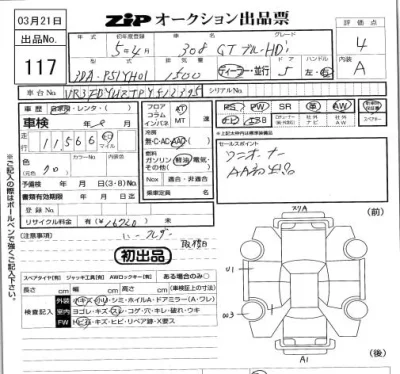 03月21日
ZIP オークション出品票
出品No.
117
年式 初年度登録 車名 グレード 評価点
5年4月 308 GTブルーHDi 4
型式 排気量 ドア ハンドル 内装
3DA-P51YH01 1500 ディーラー・並行 5 左・右 A
車台No. シリアルNo.
車歴 自家用・レンタ・( )
車検 年 月
走行 11566 km マイル
色 クロ カラーNo.
予備検 年 月 日(3・8)・MD
書類有効期限 年 月 日
登録No.
リサイクル料金 有(¥16760)未
フロア コラム インパネ AT MT 速
冷房 無・C・AC・AAC
燃料 ガソリン 軽油 電気 その他( )
Nox 適合・非適合
乗車定員 名
PS PW SR 革 AW
ナビ TV エアB
※上記太枠内は標準装備品
セールスポイント
ワンオーナー
AA初出品
※ご記入の際はボールペンで強くご記入下さい
(注意事項)
初出品
スペアタイヤ(無) ジャッキ工具(有) AWロックキー(有) ある場合のみ○
長さ cm 幅 cm 高さ cm (車検証上の寸法)
検査記入
外装 小キズ・小U・シミ・ホイルA・ドアミラー(A・ワレ)
室内 ヨゴレ・キズ・スレ・コゲ・穴・キレ・ワレ・破れ・ウキ
FW 飛石・キズ・ヒビ・リペア跡・X要ス
スリA (前)
U1
W3
A1 (後)